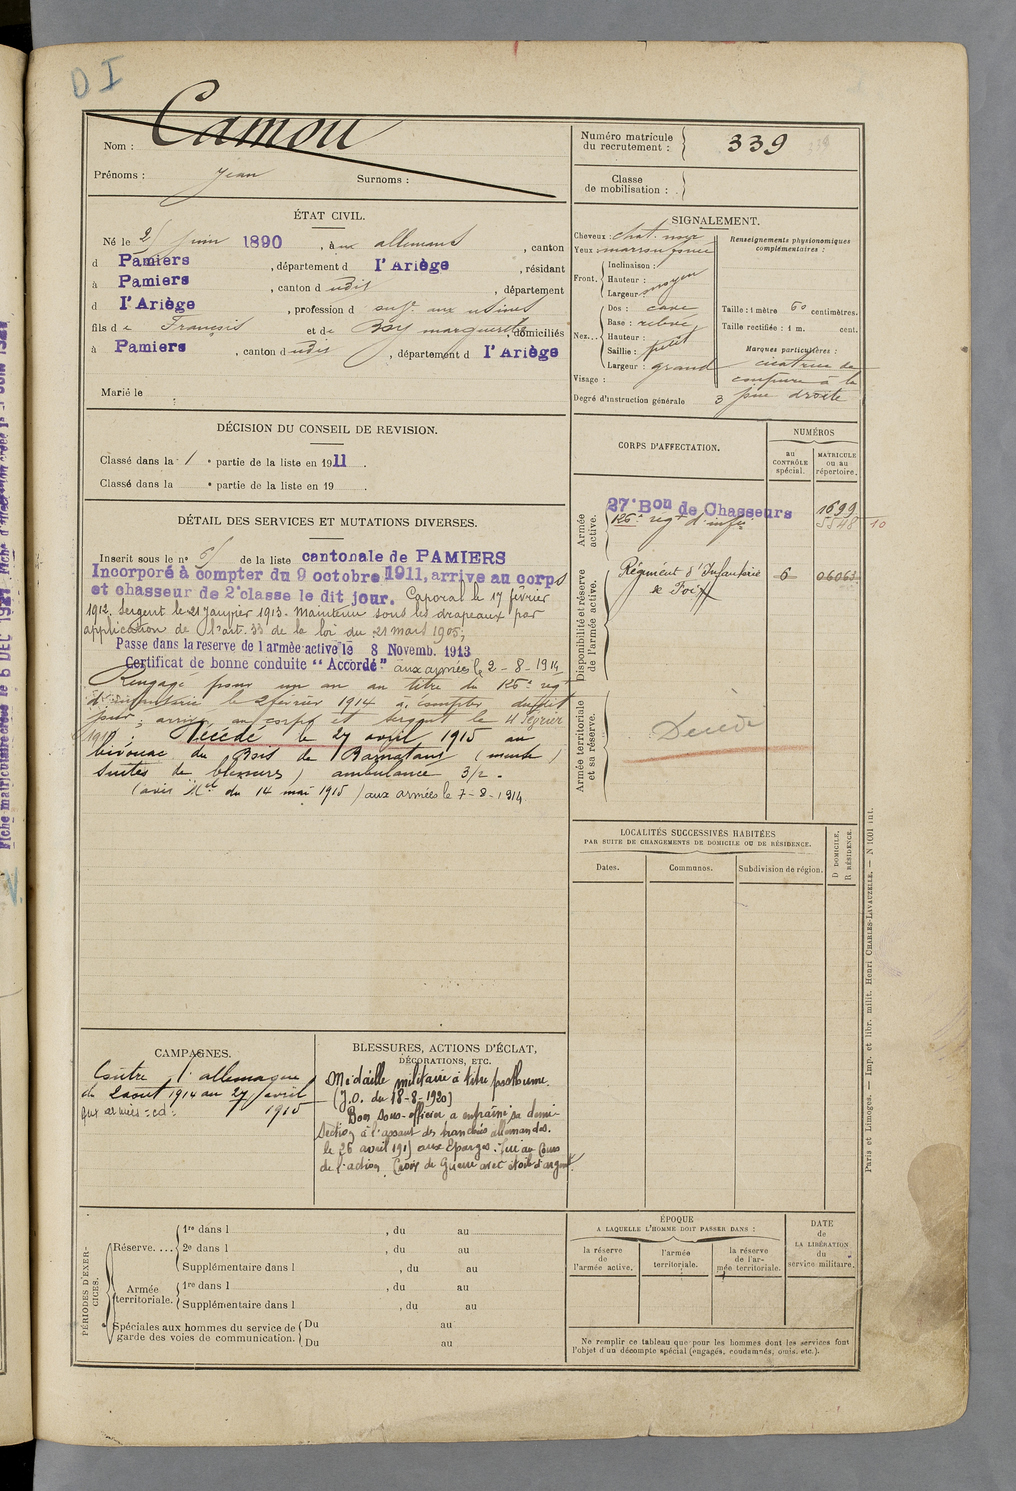 D I
Nom : Camou
Prénoms : Jean Surnoms :
Numéro matricule du recrutement : 339
Classe de mobilisation :
ÉTAT CIVIL.
Né le juin 1890, à aux allemans, canton
d Pamiers, département d l'Ariège, résidant
à Pamiers, canton d udit, département
d l'Ariège, profession d aux usines
fils de François et de Boy marguerite, domiciliés
à Pamiers, canton dudit, département d l'Ariège
Marié le
SIGNALEMENT.
Cheveux : chat. noir
Yeux marron foncé
Front. Inclinaison :
Hauteur : moyen
Largeur
Nez... Dos : cave
Base : relevée
Hauteur :
Saillie : petit
Largeur : grand
Visage :
Degré d'instruction générale 3
Renseignements physionomiques complémentaires :
Taille : 1 mètre 60 centimètres.
Taille rectifiée : 1 m. cent.
Marques particulières :
cicatrice de
coupure à la
joue droite
DÉCISION DU CONSEIL DE REVISION.
Classé dans la 1 e partie de la liste en 1911.
Classé dans la e partie de la liste en 19 .
CORPS D'AFFECTATION.
NUMÉROS
au CONTRÔLE spécial.
MATRICULE ou au répertoire.
Armée active.
27e Bon de Chasseurs 1699
126e régt d'infie 5548 10
Disponibilité et réserve de l'armée active.
Régiment d'Infanterie 6 06063
de Foix
Armée territoriale et sa réserve.
Décédé
DÉTAIL DES SERVICES ET MUTATIONS DIVERSES.
Inscrit sous le n° de la liste cantonale de PAMIERS
Incorporé à compter du 9 octobre 1911, arrive au corps
et chasseur de 2e classe le dit jour. Caporal le 17 février
1912. Sergent le 21 Janvier 1913. Maintenu sous les drapeaux par
application de l'art. 33 de la loi du 21 mars 1905,
Passe dans la reserve de l armée active le 8 Novemb. 1913
Certificat de bonne conduite "Accordé" aux armées le 2-8-1914
Rengagé pour un an au titre du 126e régt
d'infanterie le 2 février 1914 à compter dudit
jour; arrivé au corps et sergent le 4 février
Décédé le 27 avril 1915 au
bivouac du Bois de Ramatout (meuse)
suites de blessures) ambulance 3/2.
(avis Mel du 14 mai 1915) aux armées le 7-8-1914
LOCALITÉS SUCCESSIVES HABITÉES
PAR SUITE DE CHANGEMENTS DE DOMICILE OU DE RÉSIDENCE.
Dates. Communes. Subdivision de région.
D DOMICILE, R RÉSIDENCE.
CAMPAGNES.
Contre l'allemagne
du 2 aout 1914 au 27 avril
1915
BLESSURES, ACTIONS D'ÉCLAT,
DÉCORATIONS, ETC.
Médaille militaire à titre posthume.
(J.O. du 18-8-1920)
Bon sous-officier a entraîné sa demi
section à l'assaut des tranchées allemandes.
le 26 avril 1915 aux Eparges. Tué au cours
de l'action. Croix de Guerre avec étoile d'argent
PÉRIODES D'EXERCICES.
Réserve....
1re dans l , du au
2e dans l , du au
Supplémentaire dans l , du au
Armée territoriale.
1re dans l , du au
Supplémentaire dans l , du au
Spéciales aux hommes du service de garde des voies de communication.
Du au
Du au
ÉPOQUE
A LAQUELLE L'HOMME DOIT PASSER DANS :
la réserve de l'armée active.
l'armée territoriale.
la réserve de l'armée territoriale.
DATE DE LA LIBÉRATION du service militaire.
Ne remplir ce tableau que pour les hommes dont les services font
l'objet d'un décompte spécial (engagés, condamnés, omis, etc.).
Paris et Limoges. — Imp. et libr. milit. Henri CHARLES-LAVAUZELLE. — N 1001 int.